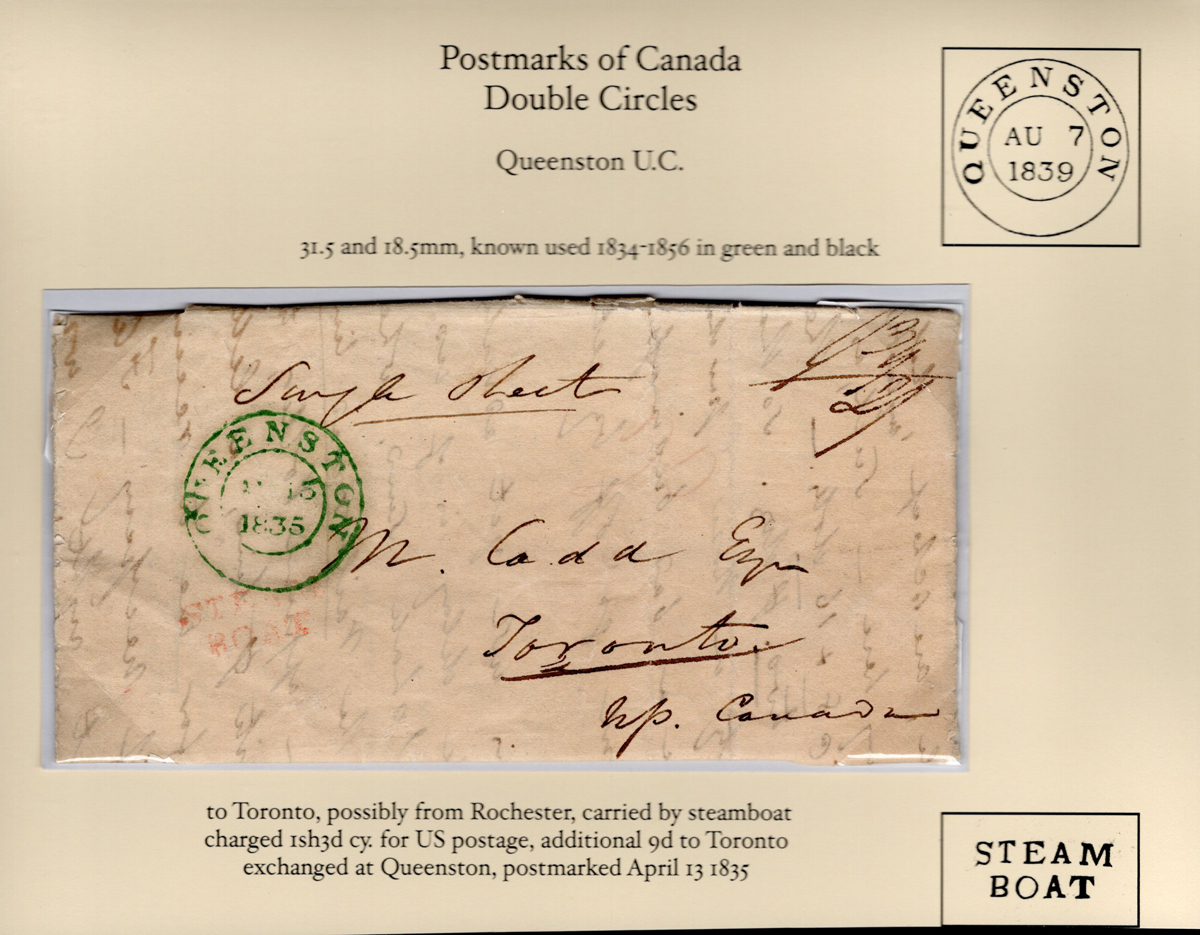 Postmarks of Canada
Double Circles
Queenston U.C.
31.5 and 18.5mm, known used 1834-1856 in green and black
QUEENSTON
AU 7
1839
Single Sheet
QUEENSTON
1835
M. Cadd Esqr
Toronto
Up. Canada
STEAM
BOAT
to Toronto, possibly from Rochester, carried by steamboat
charged 1sh3d cy. for US postage, additional 9d to Toronto
exchanged at Queenston, postmarked April 13 1835
STEAM
BOAT